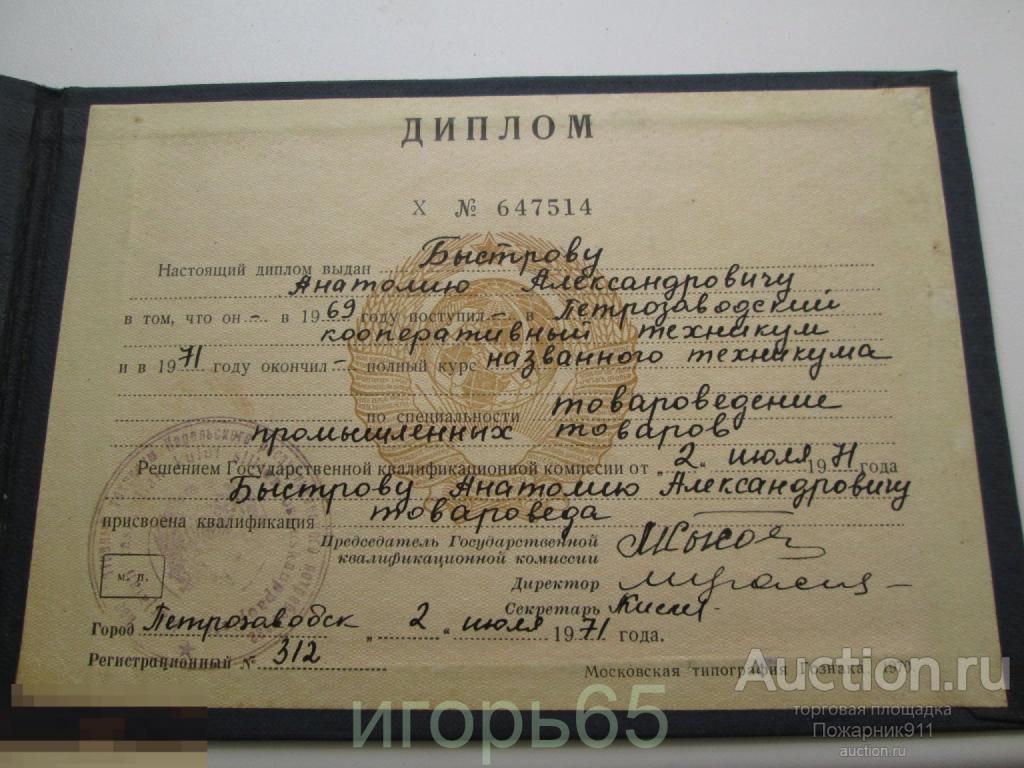 ДИПЛОМ
X № 647514
Настоящий диплом выдан Быстрову
Анатолию Александровичу
в том, что он – в 1969 году поступил – в Петрозаводский
кооперативный техникум
и в 1971 году окончил – полный курс названного техникума
по специальности товароведение
промышленных товаров
Решением Государственной квалификационной комиссии от "2" июля 1971 года
Быстрову Анатолию Александровичу
присвоена квалификация товароведа
Председатель Государственной
квалификационной комиссии
Директор
Секретарь
м. п.
Город Петрозаводск "2" июля 1971 года.
Регистрационный № 312
Московская типография Гознака. 1970.
Auction.ru
торговая площадка
Пожарник911
auction.ru
игорь65